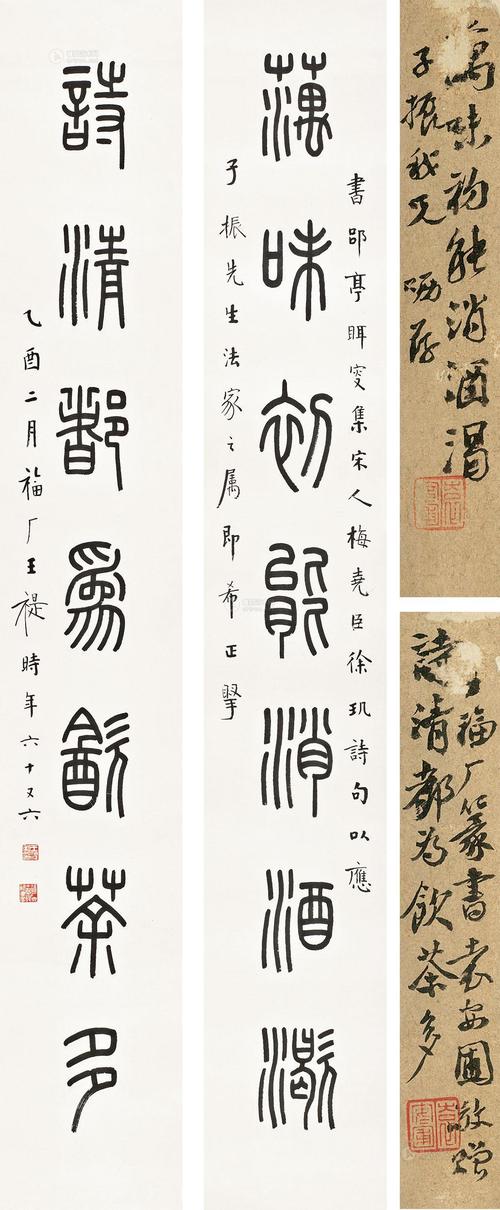 蕅味初能消酒渴
書郘亭眲叟集宋人梅堯臣徐玑詩句以應
子振先生法家之属即希正
詩清都為飲茶多
乙酉二月福厂王禔時年六十又六
味初能消酒渴
子振我兄 哂存
福厂篆書袁安圃敬贈
詩清都為飲茶多